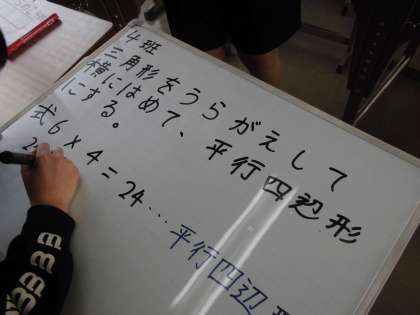 4班
三角形をうらがえして
横にはめて、平行四辺形
にする。
式6×4=24…平行四辺形
2
BBB